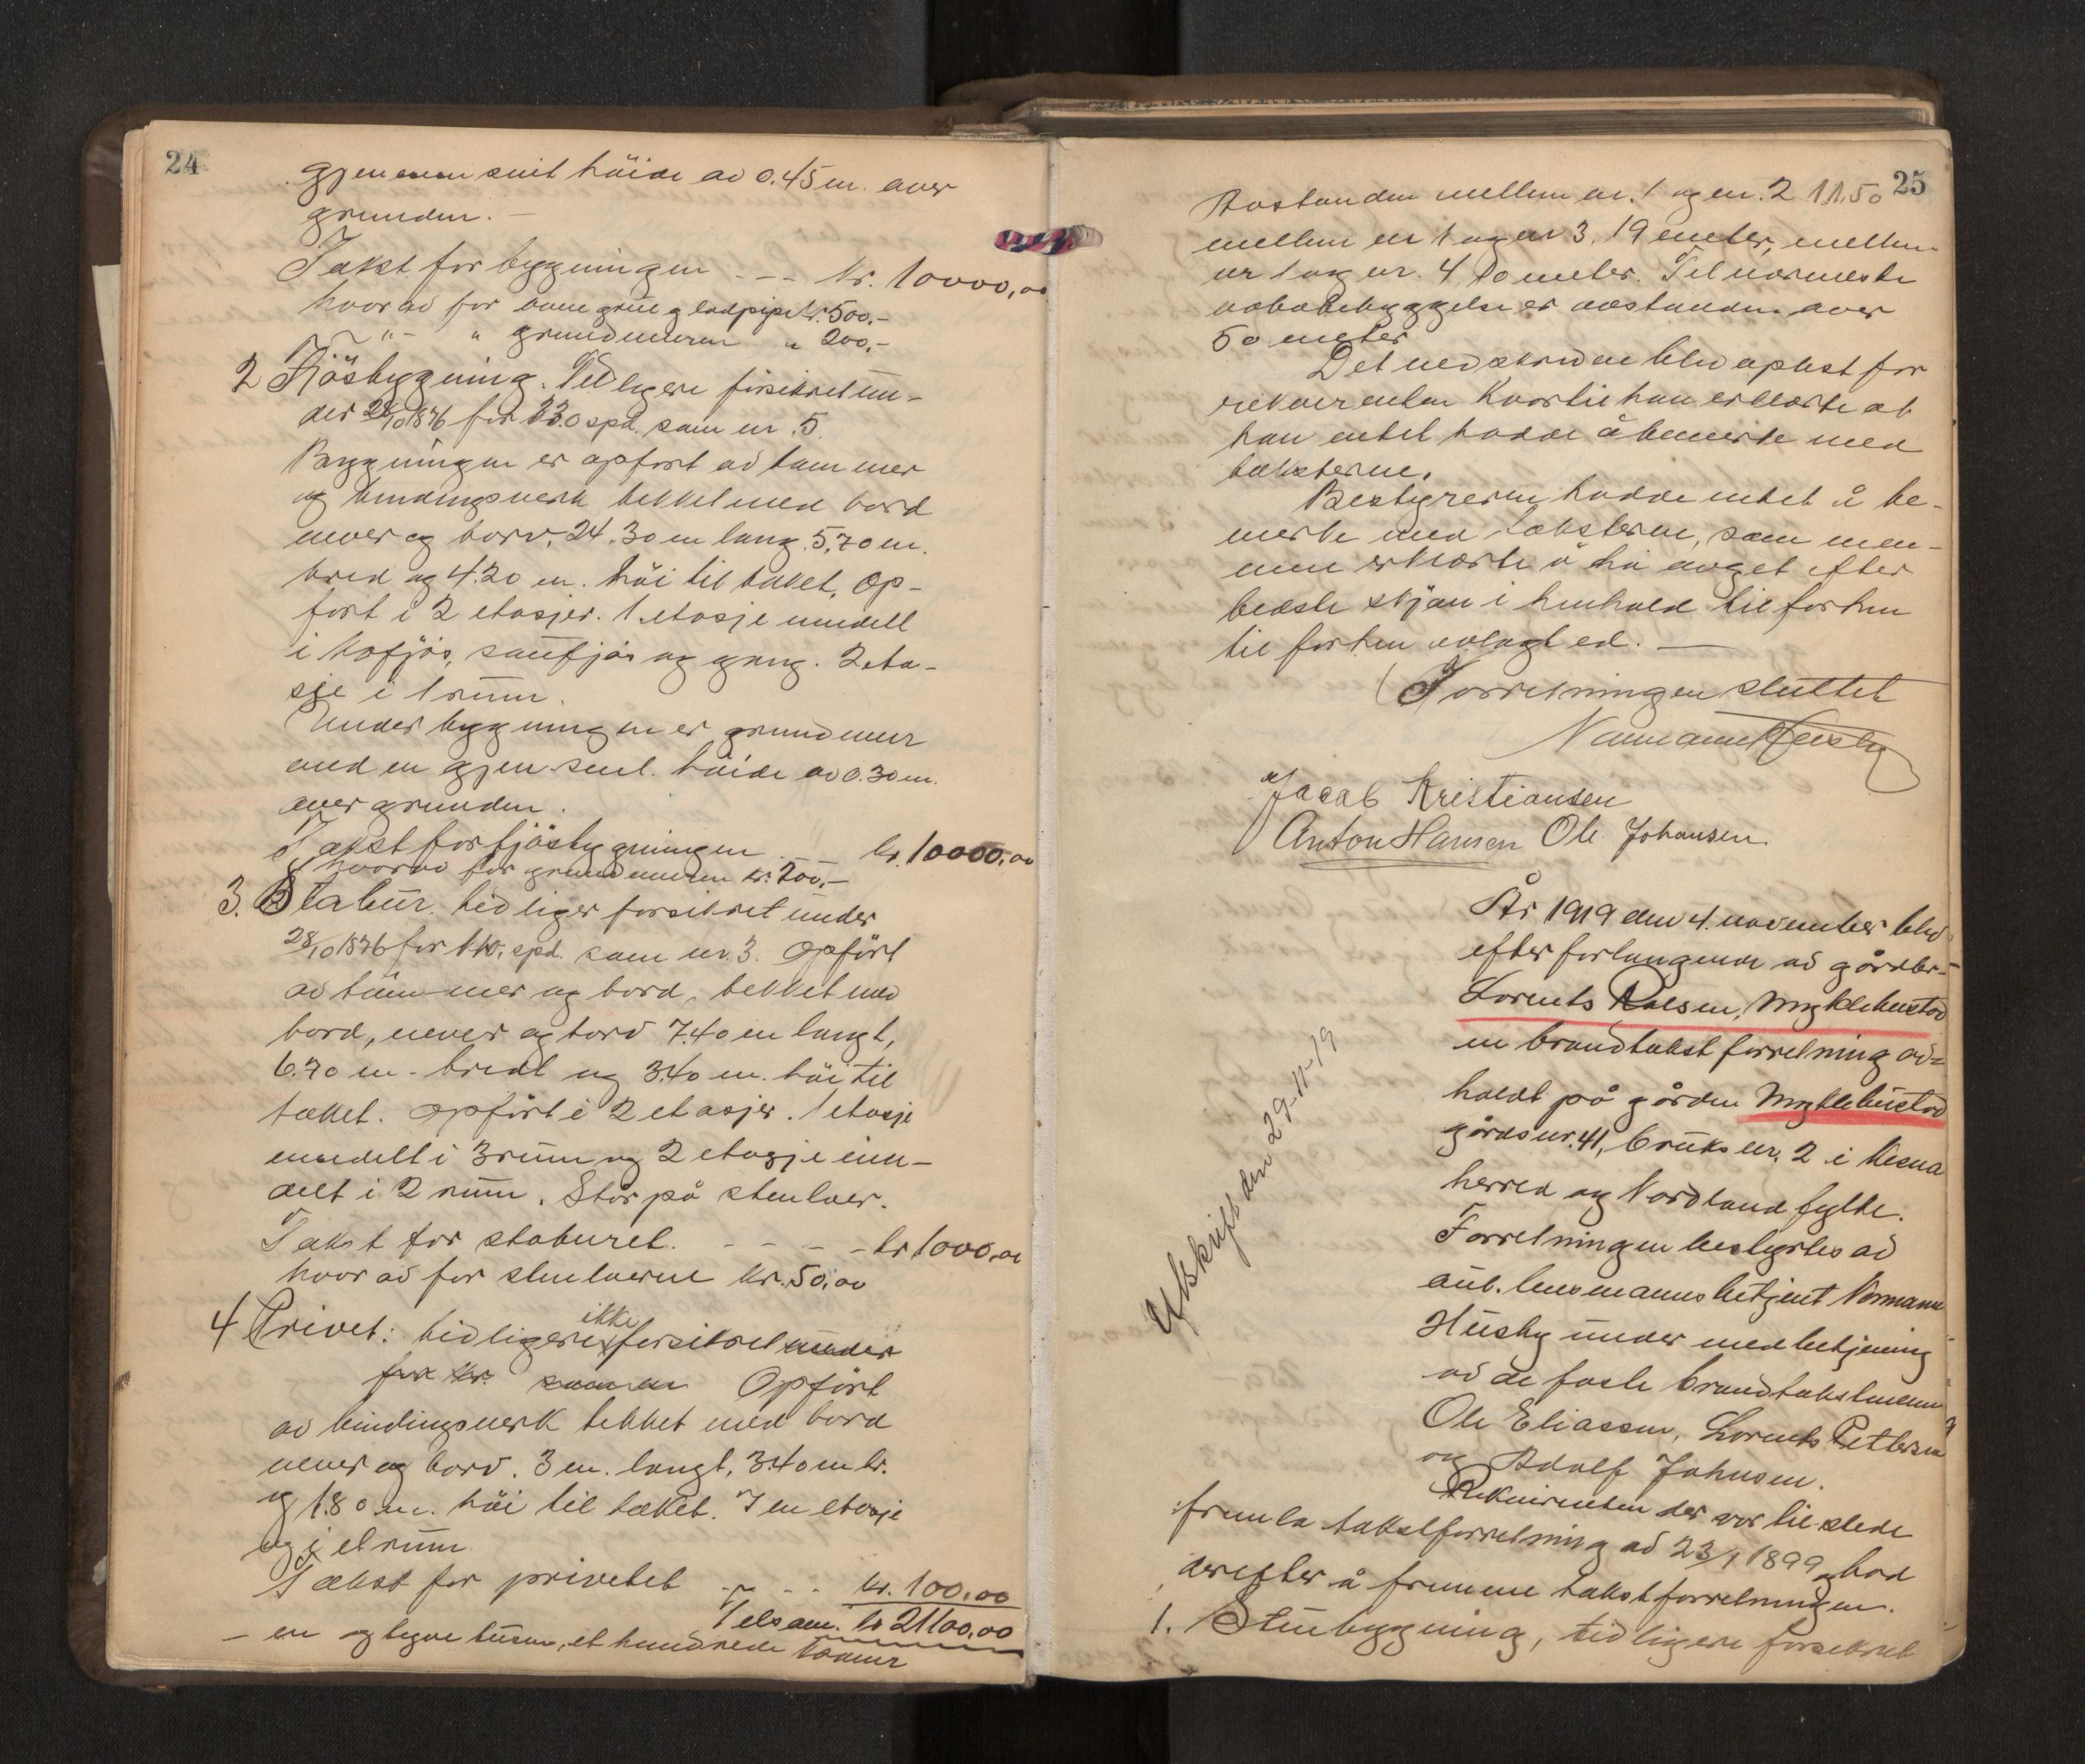 24
gjennemsnit höide av 0.45 m. over
grunden. —
Takst for bygningen - - - kr. 10000,00
hvorav for   kr. 500.-
" - " grundmuren " 200,-
2 Fjösbygning. Tidligere forsikret un-
der 28/10 1876 for 330 spd. som nr. 5.
Bygningen er opfört av tømmer
og bindingsverk tekket med bord
never og torv. 24.30 m lang, 5,70 m.
bred og 4.20 m. höi til taket. Op-
fört i 2 etasjer. 1 etasje inndelt
i kofjös, saufjös og gang. 2 eta-
sje i 1 rum.
Under bygningen er grundmur
med en gjen.snit. höide av 0.30 m.
over grunden.
Takst for fjösbygningen kr. 10000,00
hvorav for grundmuren kr. 200,-
3. Stabur. tidligere forsikret under
28/10 1876 for 110, spd. som nr. 3. Opfört
av tömmer og bord, tekket med
bord, never og torv 7.40 m langt,
6.70 m. bredt og 3.40 m. höi til
taket. Opfört i 2 etasjer. 1 etasje
inndelt i 3 rum og 2 etasje inn-
delt i 2 rum. Står på stenlaer.
Takst for staburet. - - - - kr 1000,00
hvorav for stenlaerne kr. 50,00
4 Privet: tidligere ikke forsikret under
for kr. som nr Opfört
av bindingsverk tekket med bord
never og torv. 3 m. langt, 3.40 m br.
og 1.80 m. höi til taket. I en etasje
og i et rum
Takst for privetet - - - kr. 100,00
Tilsam. kr 21100,00
— en og tyve tusen, et hundrede kroner
25
Avstanden mellem nr. 1 og nr. 2 11,50
mellem nr 1 og nr 3, 19 meter, mellem
nr 1 og nr. 4 40 meter. Til nærmeste
nabobebyggelse er avstanden over
50 meter
Det nedskrevne blev oplæst for
rekvirenten hvortil han erklærte at
han intet hadde å bemerke med
taksterne.
Bestyreren hadde intet å be-
merke med taksterne, som men-
nene erklærte å ha avget efter
bedste skjön i henhold til forhen
til forhen avlagt ed. —
Forretningen sluttet
Normann Husby
Jacab Kristiansen
Anton Hansen Ole Johansen
År 1919 den 4. november blev
efter forlangende av gårdbr.
Lorents Roesen, Myklebustad
en brandtakstforretning av-
holdt på gården Myklebustad
gårdsnr. 41, bruksnr. 2 i Nesna
herred og Nordland fylke.
Forretningen bestyrtes av
aut. lensmannsbetjent Normann
Husby under medbetjening
av de faste brandtakstmenn
Ole Eliassen, Lorents Pettersen
og Adolf Johnsen.
Rekvirenten der var tilstede
fremla takstforretning av 23/1 1899 og bad
derefter å fremme takstforretningen.
1. Stubygning, tidligere forsikret
Utskrift den 29-11-19